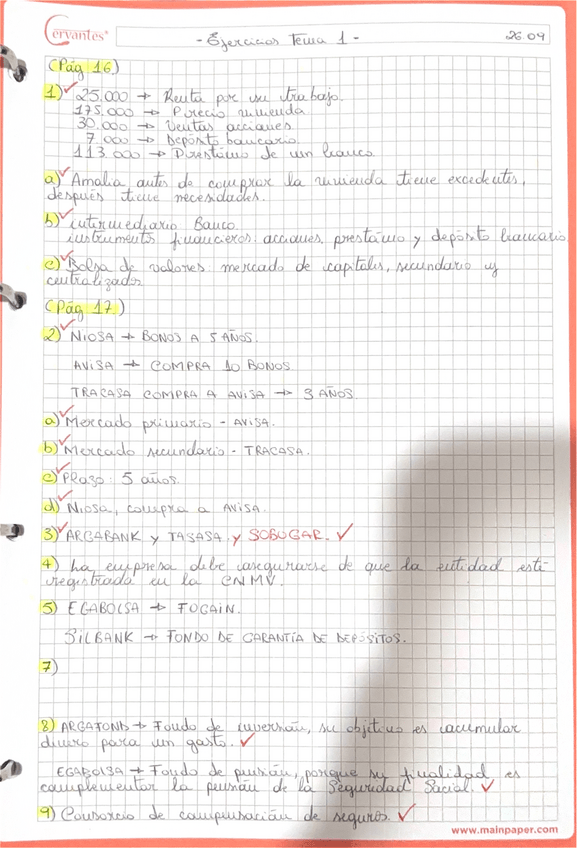 Cervantes
- Ejercicios Tema 1 -
26.09
(Pág 16)
1) 25.000 → Renta por su trabajo.
175.000 → Precio vivienda
30.000 → Ventas acciones
7.000 → Depósito bancario
113.000 → Préstamo de un banco
a) Amalia, antes de comprar la vivienda tiene excedentes,
después tiene necesidades.
b) intermediario Banco.
instrumentos financieros: acciones, préstamo y depósito bancario
c) Bolsa de valores: mercado de capitales, secundario y
centralizado
(Pág 17.)
2) NIOSA → BONOS A 5 AÑOS.
AVISA → COMPRA 10 BONOS
TRACASA COMPRA A AVISA → 3 AÑOS
a) Mercado primario - AVISA.
b) Mercado secundario - TRACASA.
c) Plazo: 5 años.
d) Niosa, compra a AVISA.
3) ARGABANK y TASASA. y SOBOGAR.
4) La empresa debe asegurarse de que la entidad esté
registrada en la CNMV.
5) EGABOLSA → FOGAIN.
SILBANK → FONDO DE GARANTÍA DE DEPÓSITOS.
7)
8) ARGAFOND → Fondo de inversión, su objetivo es acumular
dinero para un gasto.
EGABOLSA → Fondo de pensión, porque su finalidad es
complementar la pensión de la Seguridad Social.
9) Consorcio de compensación de seguros.
www.mainpaper.com